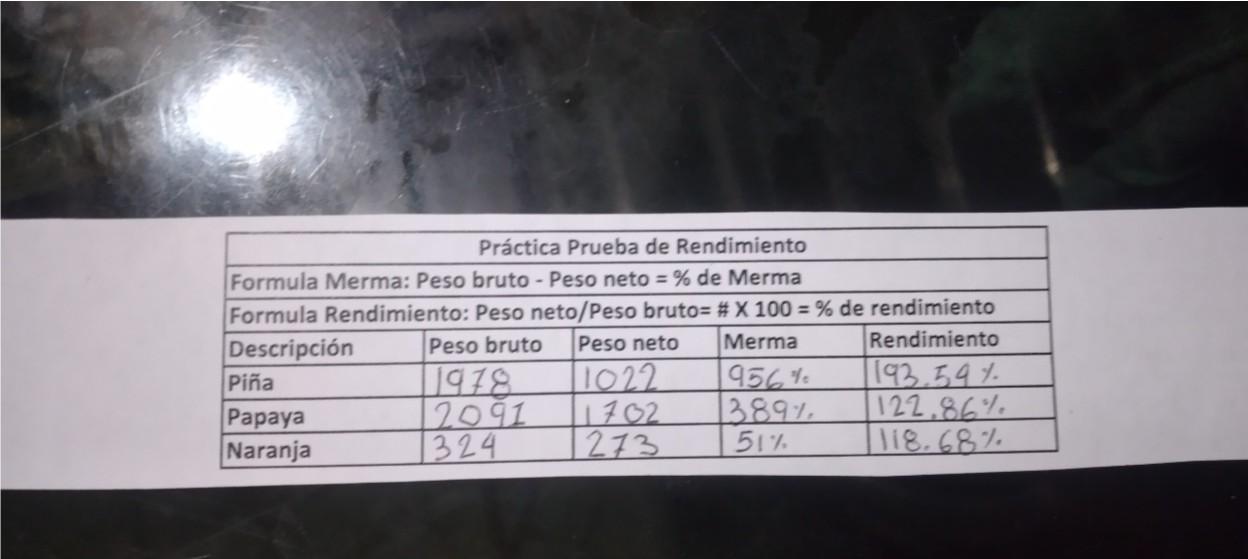 Práctica Prueba de Rendimiento
Formula Merma: Peso bruto - Peso neto = % de Merma
Formula Rendimiento: Peso neto/Peso bruto= # X 100 = % de rendimiento
Descripción Peso bruto Peso neto Merma Rendimiento
Piña 1978 1022 956% 193.54%
Papaya 2091 1702 389% 122.86%
Naranja 324 273 51% 118.68%